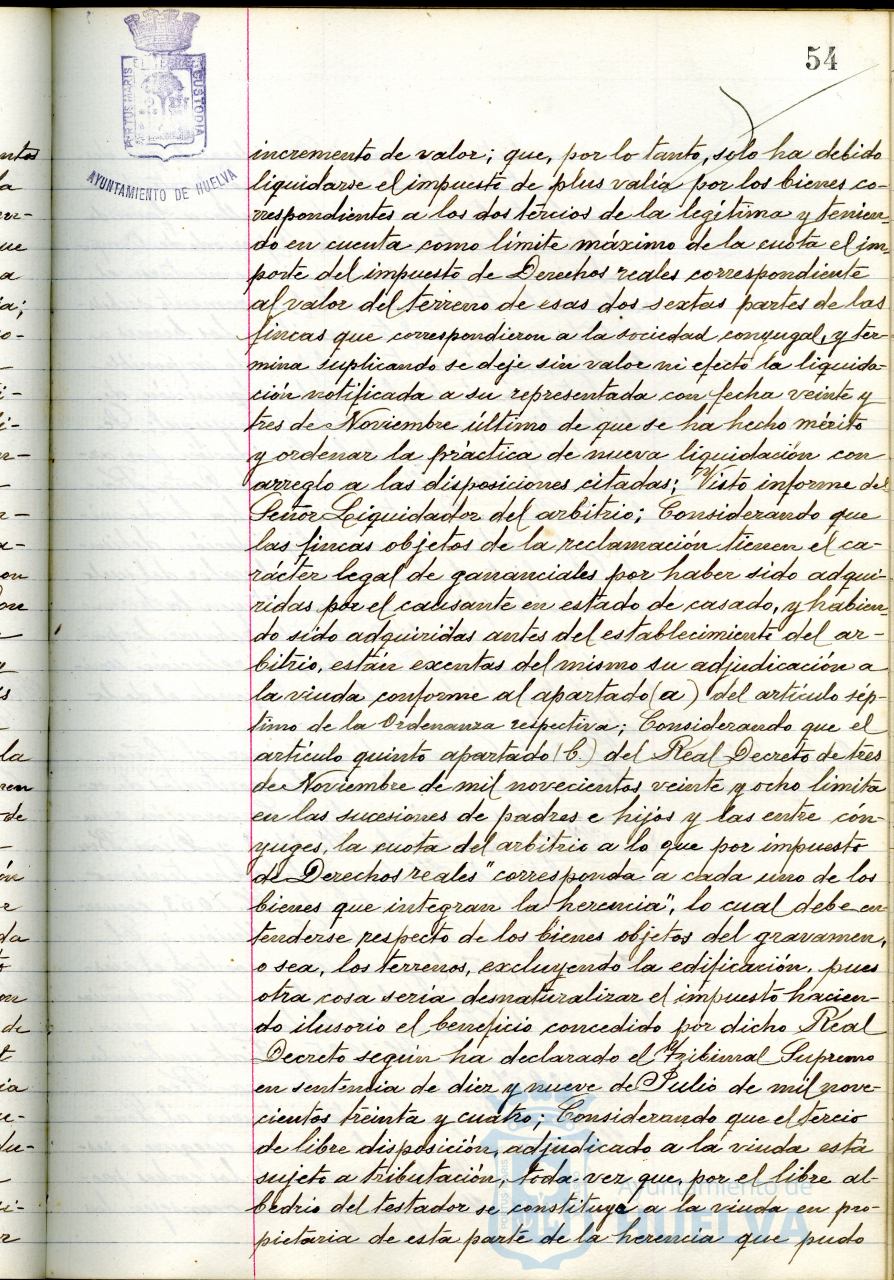 54
PORTUS MARIS ET TERRAE CUSTODIA
AYUNTAMIENTO DE HUELVA
incremento de valor; que, por lo tanto, solo ha debido
liquidarse el impuesto de plus valía por los bienes co-
rrespondientes a los dos tercios de la legítima y tenien-
do en cuenta como límite máximo de la cuota el im-
porte del impuesto de Derechos reales correspondiente
al valor del terreno de esas dos sextas partes de las
fincas que correspondieron a la sociedad conyugal, y ter-
mina suplicando se deje sin valor ni efecto la liquida-
ción notificada a su representada con fecha veinte y
tres de Noviembre último de que se ha hecho mérito
y ordenar la práctica de nueva liquidación con
arreglo a las disposiciones citadas; Visto informe del
Señor Liquidador del arbitrio; Considerando que
las fincas objetos de la reclamación tienen el ca-
rácter legal de gananciales por haber sido adqui-
ridas por el causante en estado de casado, y habien-
do sido adquiridas antes del establecimiento del ar-
bitrio, están exentas del mismo su adjudicación a
la viuda conforme al apartado (a) del artículo sép-
timo de la Ordenanza respectiva; Considerando que el
artículo quinto apartado (C.) del Real Decreto de tres
de Noviembre de mil novecientos veinte y ocho limita
en las sucesiones de padres e hijos y las entre cón-
yuges, la cuota del arbitrio a lo que por impuesto
de Derechos reales "corresponda a cada uno de los
bienes que integran la herencia", lo cual debe en-
tenderse respecto de los bienes objetos del gravamen,
o sea, los terrenos, excluyendo la edificación, pues
otra cosa sería desnaturalizar el impuesto hacien-
do ilusorio el beneficio concedido por dicho Real
Decreto según ha declarado el Tribunal Supremo
en sentencia de diez y nueve de Julio de mil nove-
cientos treinta y cuatro; Considerando que el tercio
de libre disposición, adjudicado a la viuda está
sujeto a tributación, toda vez que, por el libre al-
bedrio del testador se constituye a la viuda en pro-
pietaria de esta parte de la herencia que pudo
Ayuntamiento de
HUELVA